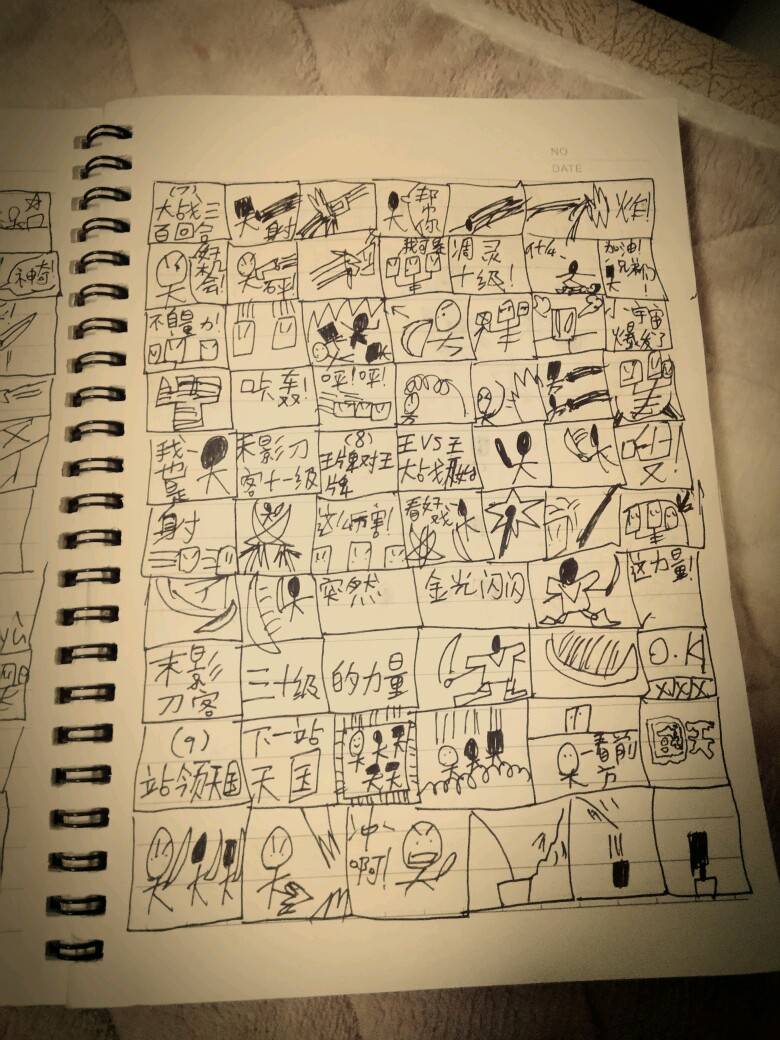 NO
DATE
(7)
大战三
百回合
射
帮
你
炸!
好
机
会!
砰!
我可系
凋灵
十级!
什么
加油!
兄弟们
!
神奇!
不自量力!
小宇宙
爆发了
咔轰!
呯!呯!
我
也
是
末影刀
客十一级
(8)
王牌对王
牌
王VS王
大战开始
射
这么厉害!
看好
戏
突然
金光闪闪
这力量!
末影
刀客
三十级
的力量
O.K
XXX
(9)
站领天国
下一站
天国
看前
方
冲
啊!